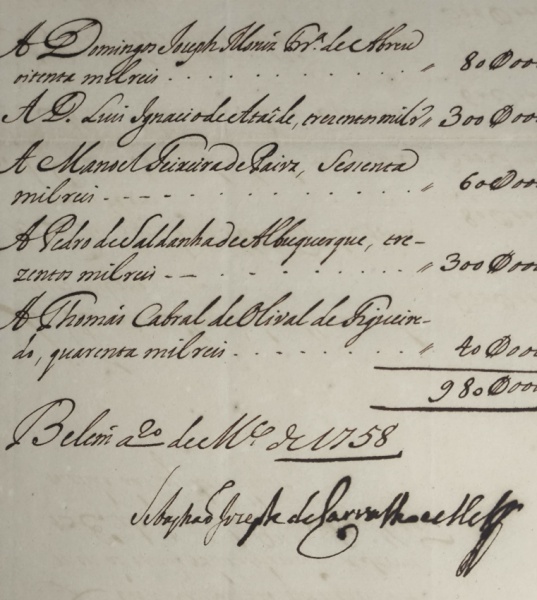 A Domingos Joseph Moniz Frª. de Abreu
oitenta mil reis . . . . . . . . . . . . " 80$00
A D. Luis Ignacio de Ataíde, trezentos mil rˢ " 300$00
A Manoel Teixeira de , Sessenta
mil reis - - - - . . . . . . . . . " 60$00
A Pedro de Saldanha de Albuquerque, tre-
zentos mil reis - - . . . . . . . . " 300$00
A Thomás Cabral de Olival de Figueire-
do, quarenta mil reis . . . . . . . . . " 40$00
980$00
Belem a 20 de Mˢᵒ de 1758
Sebastiaõ Joseph de Carvalho e Mello